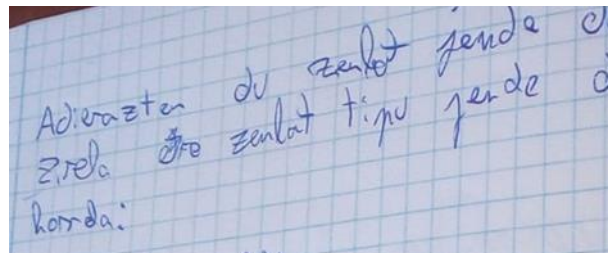 Adierazten du zenbat jende
zirela eta zenbat tipu jende
honda: